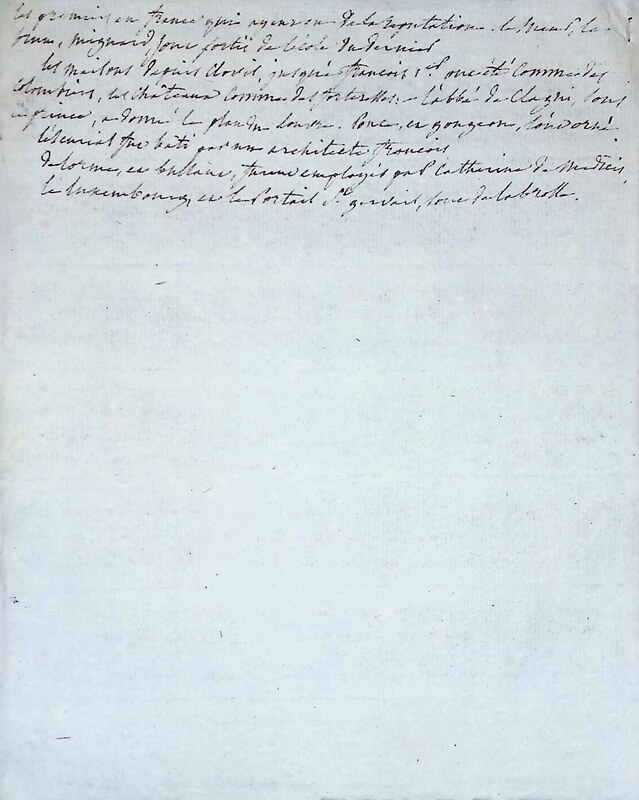 les premiers en france qui ayent eu de la reputation. le Brun, la
mignard, sont sortis de l'école du dernier
les maisons depuis clovis, jusqu'à françois 1er ont été comme des
colombiers, les châteaux comme des forteresses. l'abbé de Clagni, sous
ce prince, a donné le plan du louvre. Ponce, et gougeon, l'ont orné.
l'éscurial fut bâti par un architecte françois
de lorme, et bullant, furent employés par Catherine de Medicis,
le luxembourg, et le Portail St. gervais, sont de la brosse.